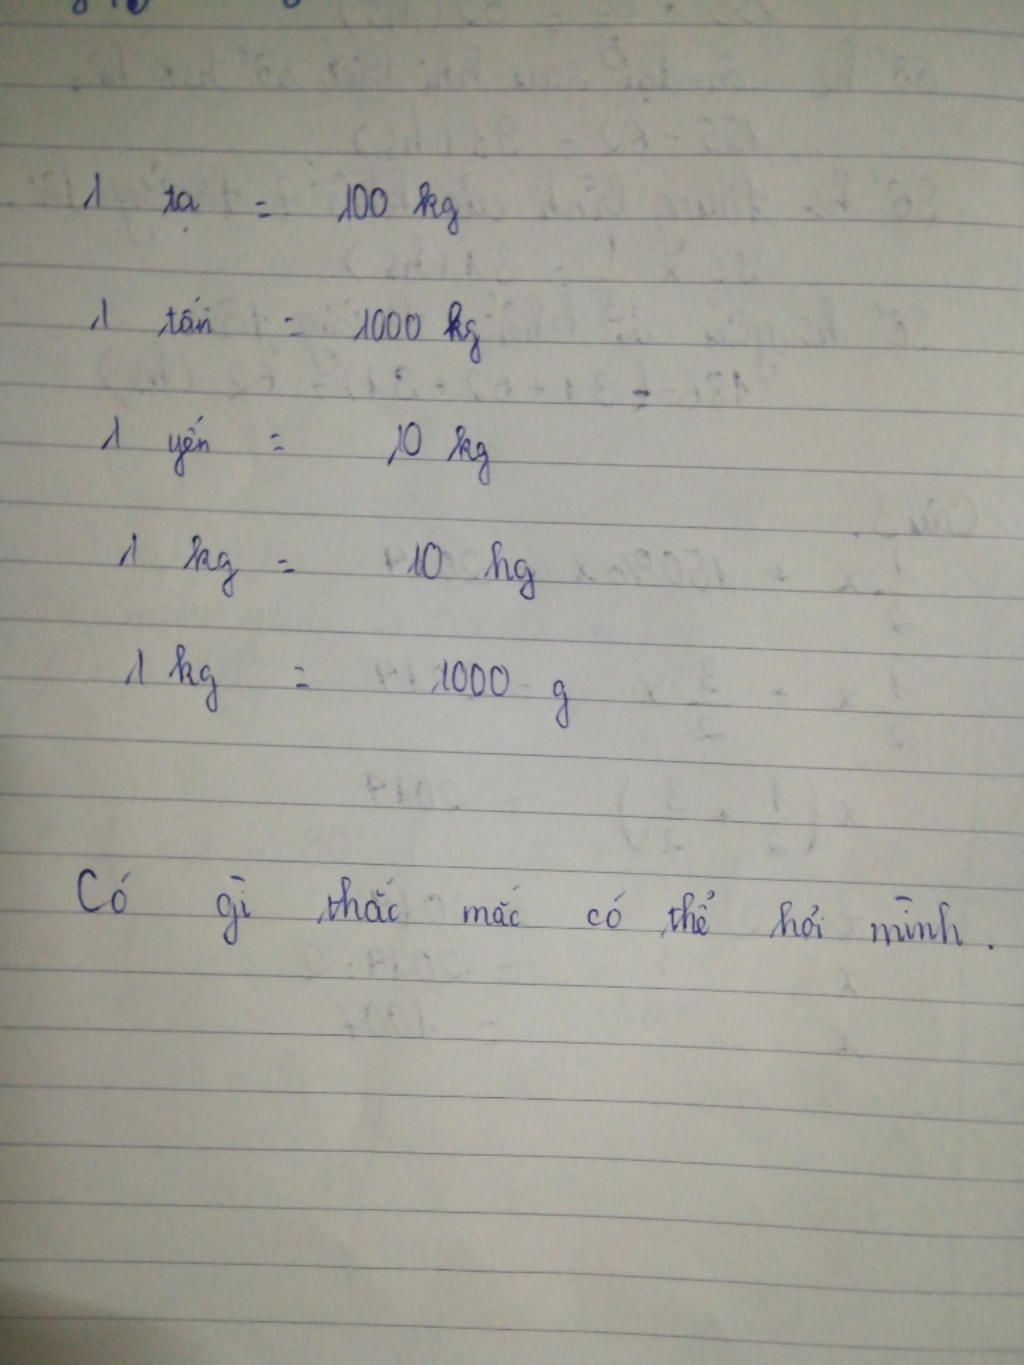 1 tạ = 100 kg
1 tấn = 1000 kg
1 yến = 10 kg
1 kg = 10 hg
1 kg = 1000 g
Có gì thắc mắc có thể hỏi mình.